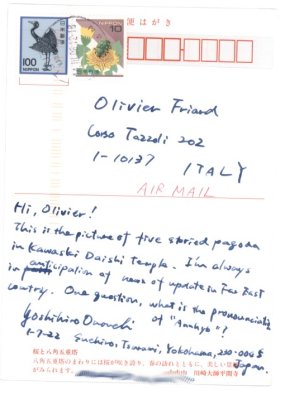 日本郵便
100
NIPPON
NIPPON
10
郵便はがき
Olivier Friard
Corso Tazzoli 202
I-10137
ITALY
AIR MAIL
Hi, Olivier!
This is the picture of five storied pagoda
in Kawasaki Daishi Temple. I'm always
in anticipation of news of update in Far East
country. One question, what is the pronounciation
of " "?
Yoshihiro Onouchi
1-7-22 Suehiro, Tsurumi, Yokohama, 230-0045
Japan.
桜と八角五重塔
八角五重塔のまわりには桜が咲き誇り、春の訪れとともに、美しい
がみられます。
川崎大師平間寺